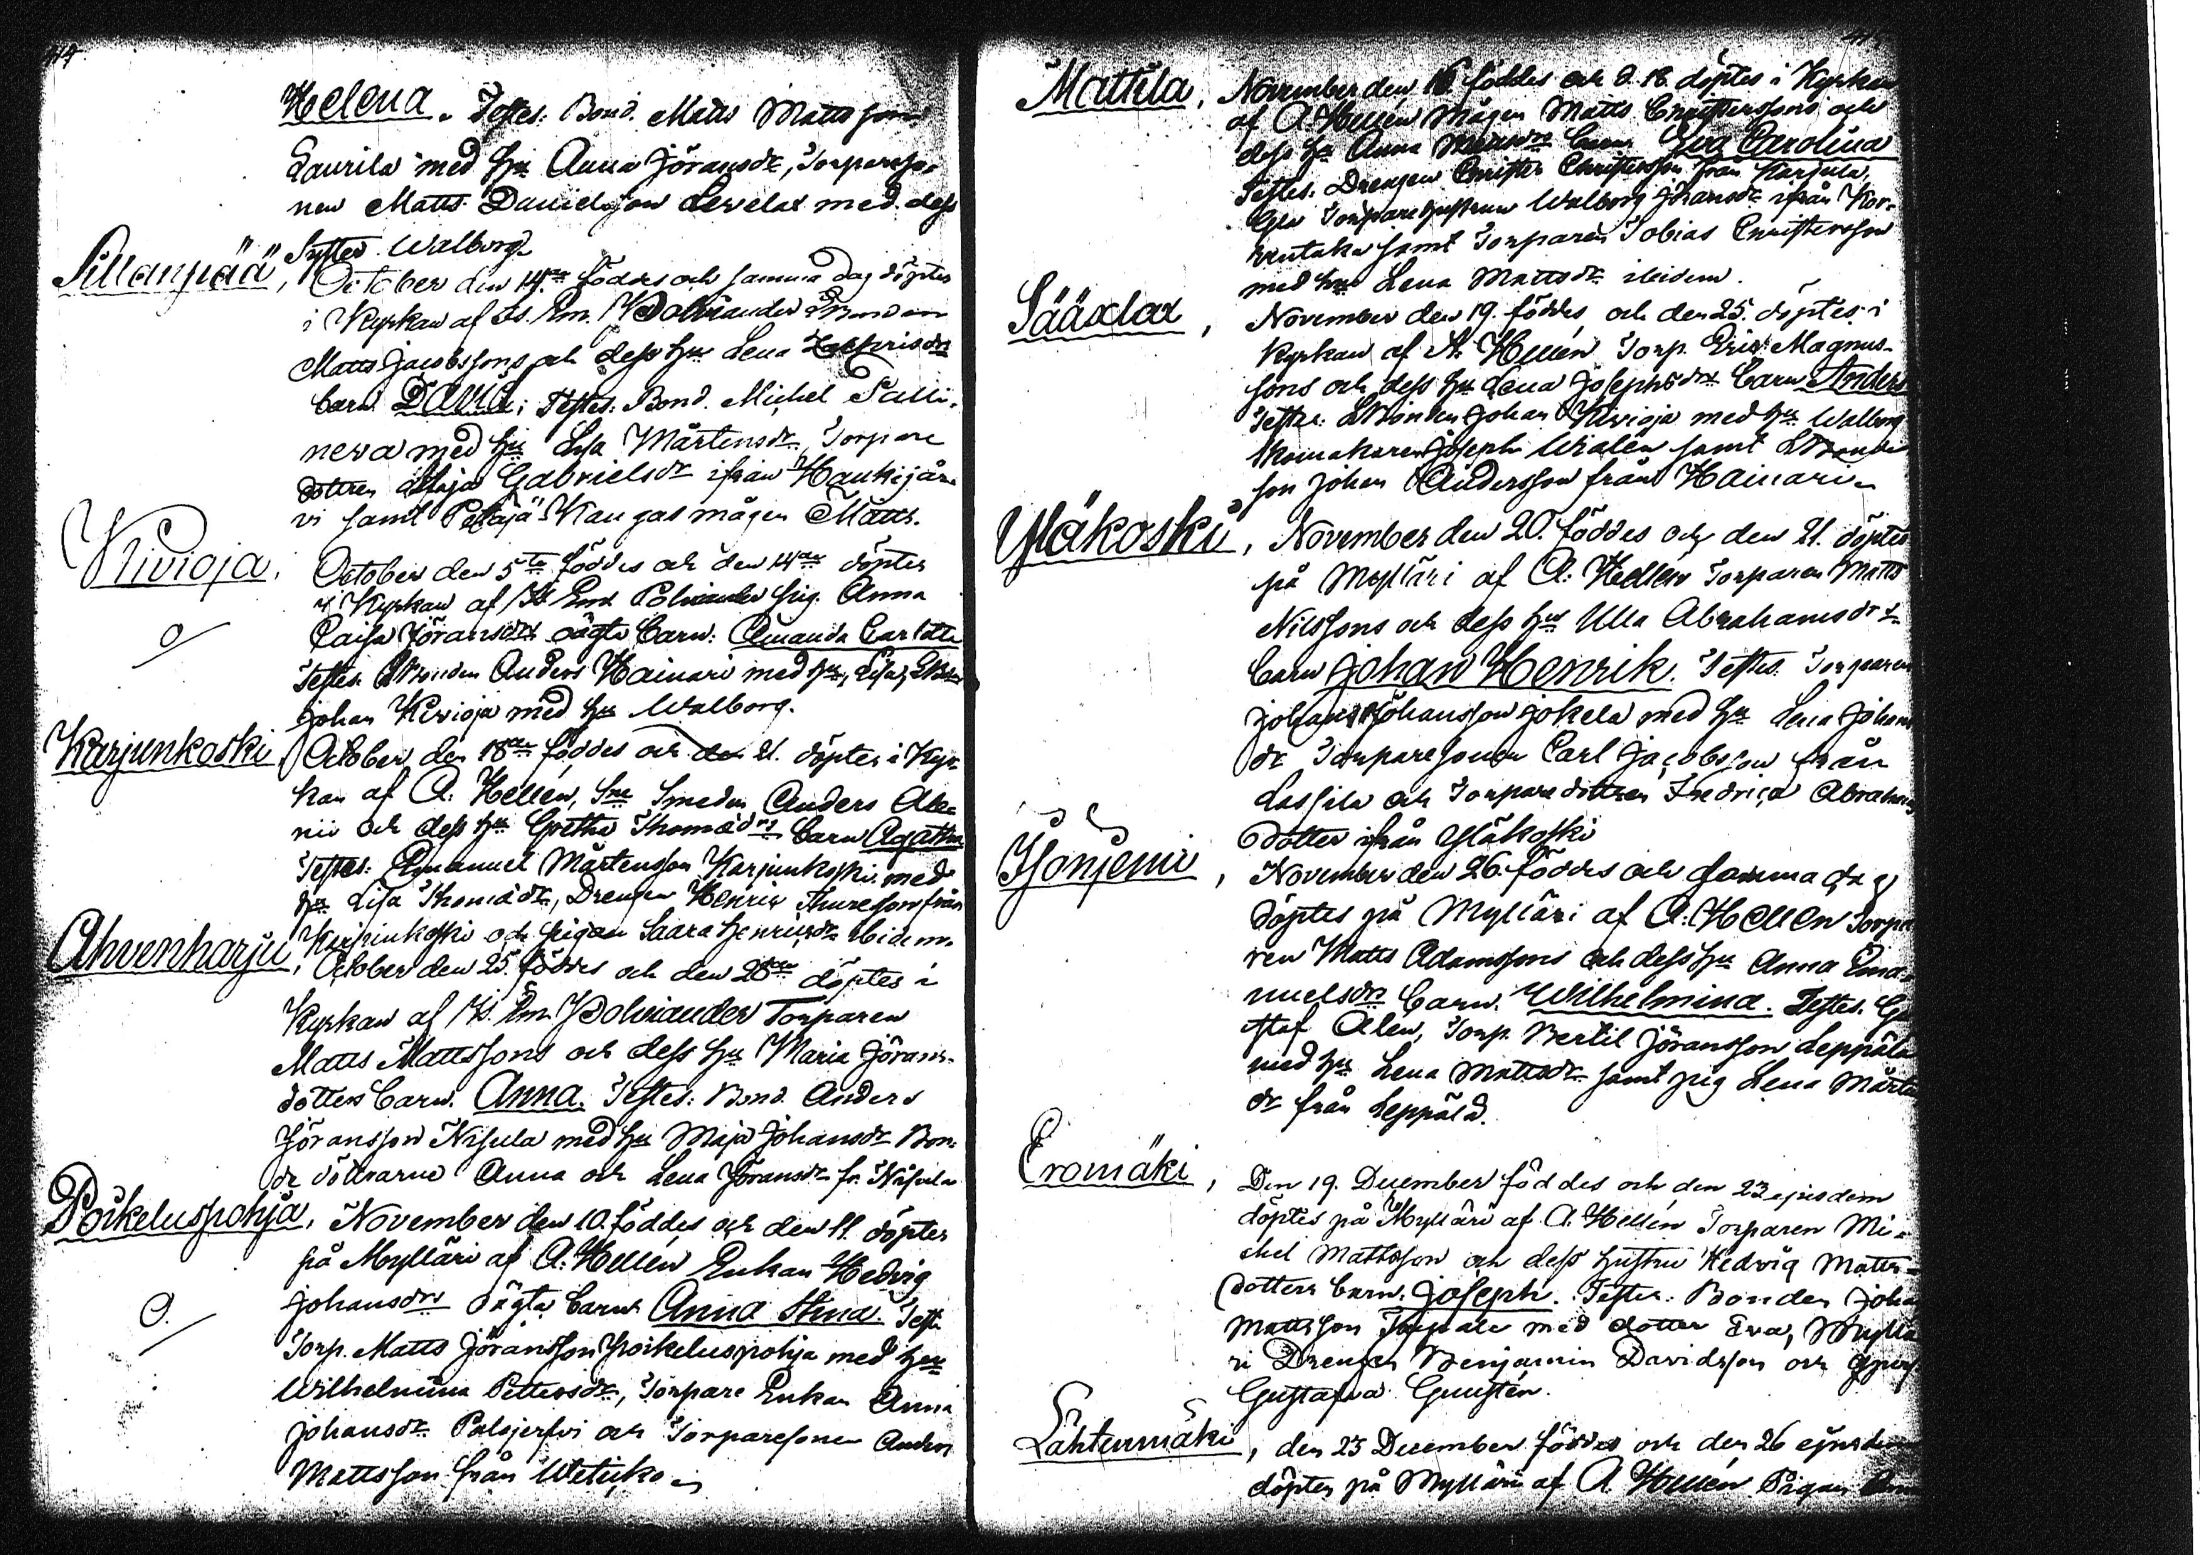 Helena. Testes: Bond. Matts Mattsson
Laurila med hu Anna Jöransdr, Torpareso-
nen Matts Danielsson Levelax med dess
Syster Walborg.
Sillanpää, October den 14de föddes och samma dag döptes
i Kyrkan af Is. Em. Polviander Bonden
Matts Jacobssons och dess hu Lena
barn David; Testes: Bond. Michel Palli-
neva med hu Lisa Mårtensdr, Torpare
dottren Maja Gabrielsdr ifrån Haukijär-
vi samt Petäjä-Kangas mågen Matts.
Kivioja, October den 5te föddes och den 14de döptes
i Kyrkan af Is. Em. Polviander Pig. Anna
Caisa Jöransdrs oägta barn: Amanda Carlotta
Testes: Bonden Anders Hainari med hu, Lisa,
Johan Kivioja med hu Walborg.
o/
Karjunkoski, October den 18de föddes och den 21. döptes i Kyr-
kan af A. Hellén, Smeden Anders Ale-
nii och dess hu Gretha Thomædrs barn Agatha
Testes: Emanuel Mårtensson Karjunkoski med
hu Lisa Thomædr, Drengen Henric Thuresson från
Karjunkoski och pigan Saara Henricsdr ibidem.
Ahvenharju, October den 25. föddes och den 28de döptes i
Kyrkan af Is. Em. Polviander Torparen
Matts Mattssons och dess hu Maria Jörans-
dotters barn. Anna. Testes: Bond. Anders
Jöransson Nisula med hu Maja Johansdr Bon-
de döttrarne Anna och Lena Jöransdr fr. Nisula
Poikeluspohja, November den 10. föddes och den 11. döptes
på Mylläri af A. Hellén Enkan Hedvig
Johansdrs oägta barn Anna Stina. Test.
O./
Torp. Matts Jöransson Poikeluspohja med hu
Wilhelmina Pettersdr, Torpare Enkan Anna
Johansdr Palojerfvi och Torparesonen Anders
Mattsson från
Mattila, November den 16. föddes och d. 18. döptes i Kyrkan
af A. Hellén Mågen Matts Christerssons och
dess hu Anna barn Eva Carolina
Testes: Drengen Christer Christersson från Karjula,
Torparehustrun Walborg Johansdr ifrån Kor-
ventaka samt Torparen Tobias Christersson
med hu Lena Mattsdr ibidem.
Sääxlax, November den 19. föddes och den 25. döptes i
Kyrkan af A. Hellén Torp. Eric Magnus-
sons och dess hu Lena Josephsdrs barn Anders
Testes: Bonden Johan Kivioja med hu Walborg
Skomakaren Joseph Wialén samt
son Johan Andersson från Hainari.
Yläkoski, November den 20. föddes och den 21. döptes
på Mylläri af A. Hellén Torparen Matts
Nilssons och dess hu Ulla Abrahamsdrs
barn Johan Henrik. Testes: Torparen
Johan Johansson Jokela med hu Lena Johans
dr Torparesonen Carl Jacobsson från
Lassila och Torparedottren Fredrica Abrahams
dotter ifrån Yläkoski
Isoniemi, November den 26. föddes och samma dag
döptes på Mylläri af A. Hellén Torpa
ren Matts Adamssons och dess hu Anna Ema-
nuelsdrs barn. Wilhelmina. Testes: Gu
staf Alen, Torp. Bertil Jöransson Leppälä
med hu Lena Mattsdr samt pig Lena Mårtens
dr från Leppälä.
Eromäki, Den 19. December föddes och den 23 ejusdem
döptes på Mylläri af A. Hellén Torparen Mi-
chel Mattsson och dess hustru Hedvig Matts-
dotters barn. Joseph. Testes: Bonden Johan
Mattsson med dotter Eva, Myllä
ri Drengen Benjamin Davidsson och
Gustafva Gunstén.
Lähtenmäki, den 23 December föddes och den 26 ejusdem
döptes på Mylläri af A. Hellén Pigan